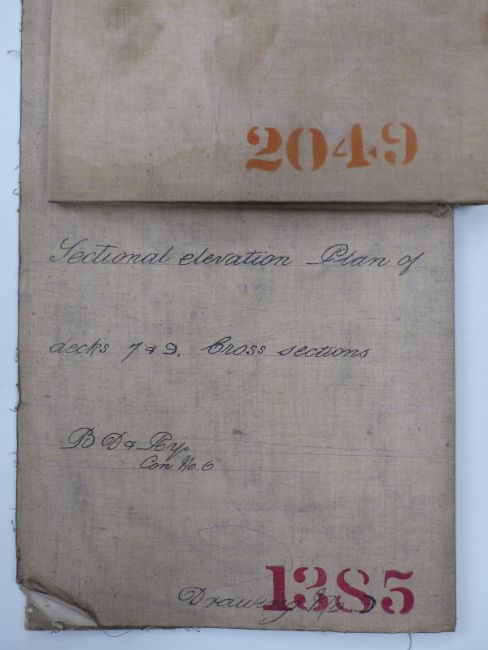 2049
Sectional elevation Plan of
decks 7 & 9. Cross sections
B D & Ry.
Con No 6
1385
Drawing No. 7